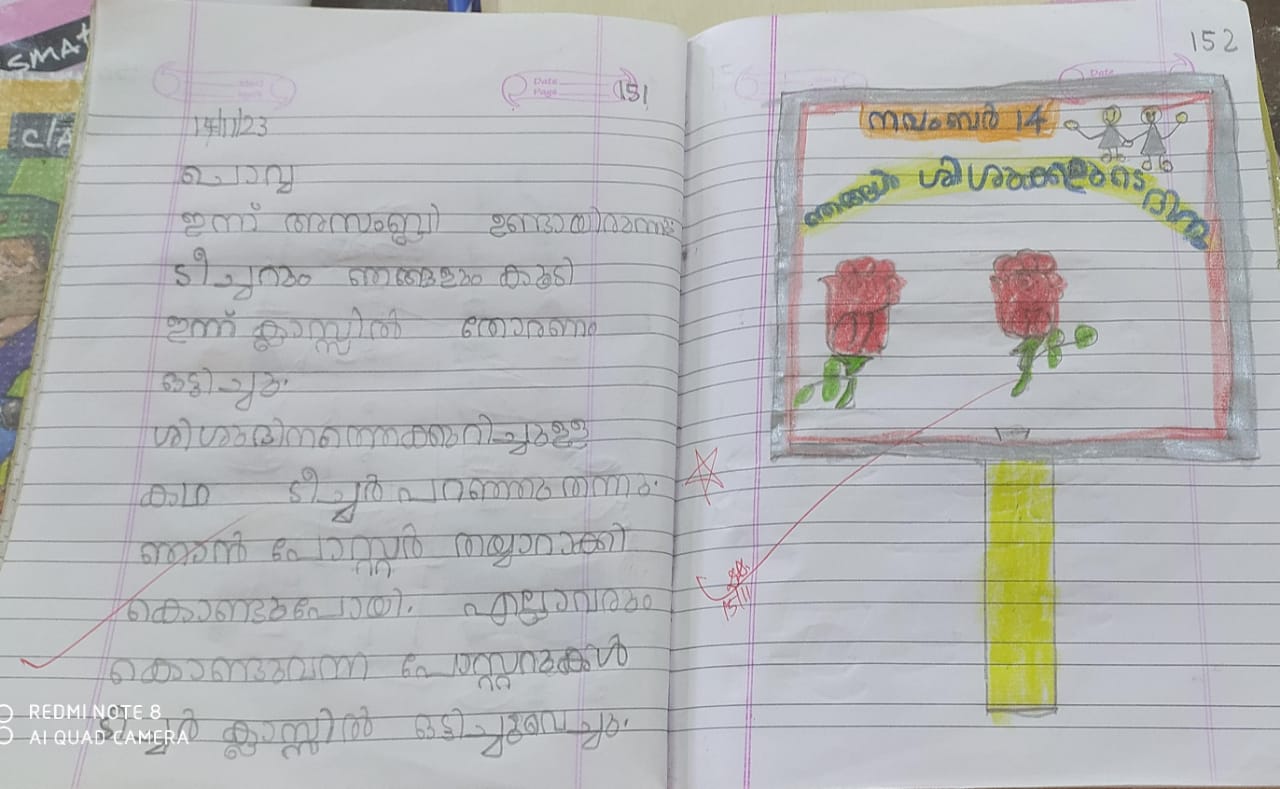 SMA
C/A
Date
Page
151
14/11/23
ചൊവ്വ
ഇന്ന് അസംബ്ലി ഉണ്ടായിരുന്നു
ടീച്ചറും ഞങ്ങളും കൂടി
ഇന്ന് ക്ലാസ്സിൽ തോരണം
ഒട്ടിച്ചു.
ശിശുദിനത്തെക്കുറിച്ചുള്ള
കഥ ടീച്ചർ പറഞ്ഞുതന്നു.
ഞാൻ പോസ്റ്റർ തയ്യാറാക്കി
കൊണ്ടുപോയി. എല്ലാവരും
കൊണ്ടുവന്ന പോസ്റ്ററുകൾ
ടീച്ചർ ക്ലാസ്സിൽ ഒട്ടിച്ചുവെച്ചു.
152
Date
നവംബർ 14
ഞങ്ങൾ ശിശുക്കളുടെ ദിനം
15/11
REDMI NOTE 8
AI QUAD CAMERA